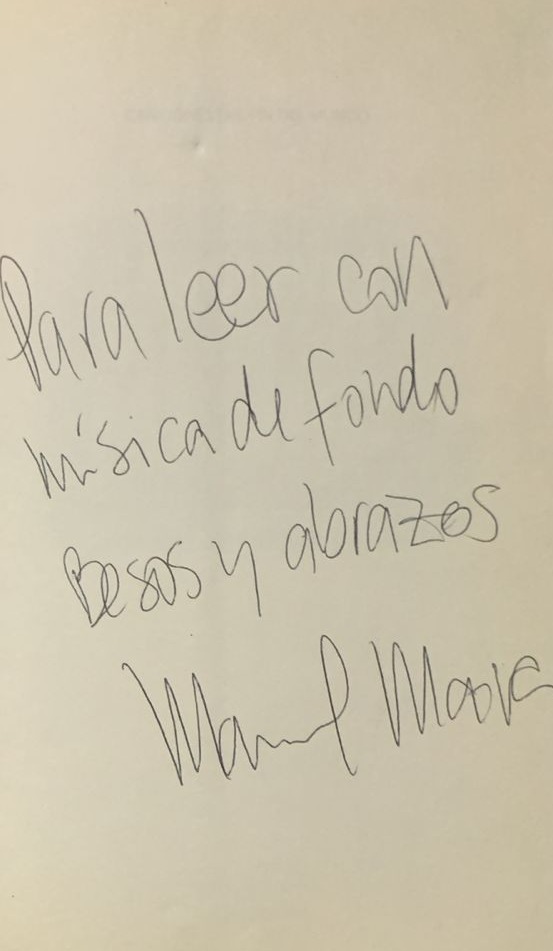 Para leer con
música de fondo
Besos y abrazos
Manuel Moya